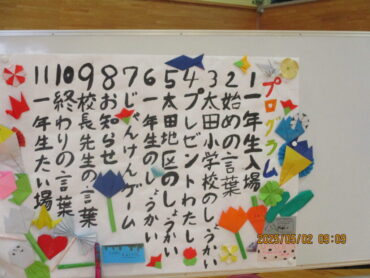 プログラム
1 一年生入場
2 始めの言葉
3 太田小学校のしょうかい
4 プレゼントわたし
5 太田地区のしょうかい
6 一年生のしょうかい
7 じゃんけんゲーム
8 お知らせ
9 校長先生の言葉
10 終わりの言葉
11 一年生たい場
2025/05/02 09:09